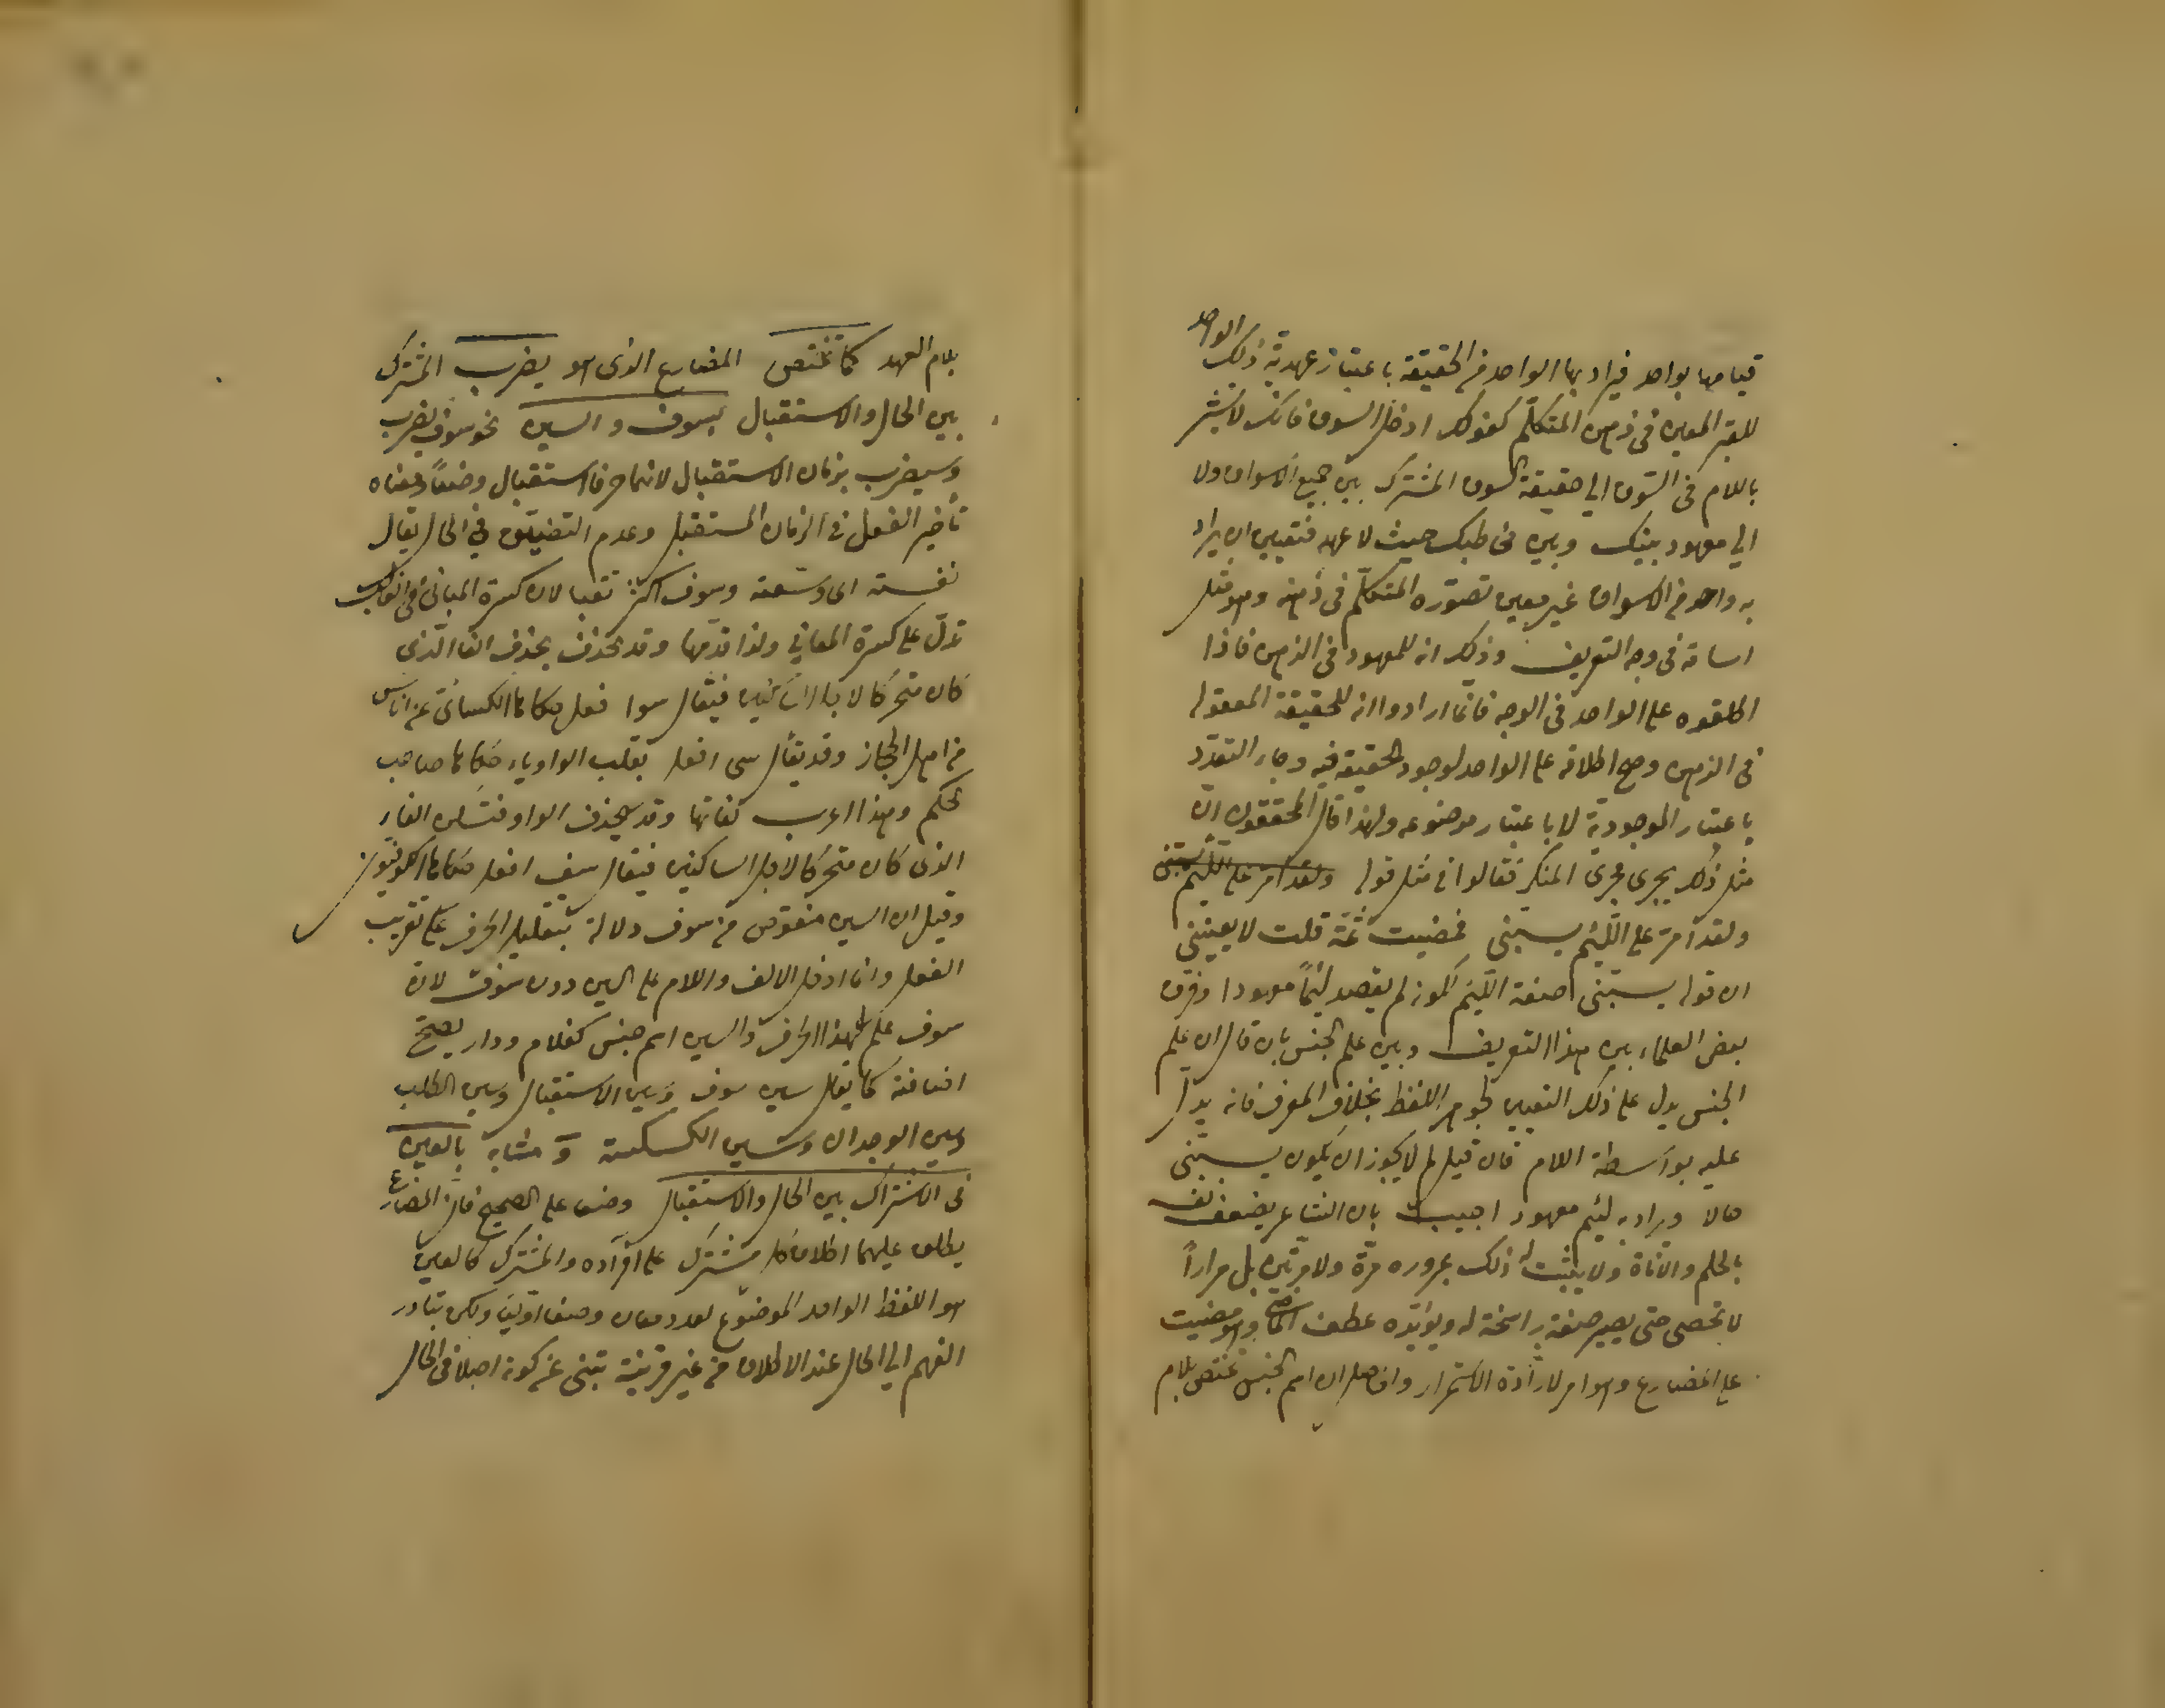 قيامها بواحد فيراد بها الواحد من الحقيقة باعتبار عهدية ذلك الواحد
الغير المعين في ذهن المتكلم كقولك ادخل السوق فانك لا تشير
باللام في السوق الي حقيقة السوق المشترك بين جميع الاسواق ولا
الي معهود بينك وبين مخاطبك حيث لا عهد فتعين ان يراد
به واحد من الاسواق غير معين تصوره المتكلم في ذهنه وهو مثل
اسامة في وجه التعريف وذلك انه للمعهود في الذهن فاذا
اطلقوه على الواحد في الوجه فانما ارادوا انه للحقيقة المعقولة
في الذهن وصح اطلاقه على الواحد لوجود الحقيقة فيه وجاء التعدد
باعتبار الموجودية لا باعتبار موضوعه ولهذا قال المحققون ان
مثل ذلك يجري مجرى المنكر فقالوا في مثل قوله ولقد امر على اللئيم يسبني
ولقد امر على اللئيم يسبني فمضيت ثمة قلت لا يعنيني
ان قوله يسبني صفة اللئيم لكونه لم يقصد لئيماً معهودا وفرق
بعض العلماء بين هذا التعريف وبين علم الجنس بان قال ان علم
الجنس يدل على ذلك التعيين بجوهر اللفظ بخلاف المعرف فانه يدل
عليه بواسطة اللام فان قيل لم لا يجوز ان يكون يسبني
حالا ويراد به لئيم معهود اجيب بان الشاعر يصف نفسه
بالحلم والاناة ولا يثبت له ذلك بمروره مرة ولا مرتين بل مراراً
لا تحصى حتى يصير صفة راسخة له ويؤيده عطف الماضي وهو مضيت
على المضارع وهو امر لارادة الاستمرار والحاصل ان اسم الجنس تختص بلام
بلام العهد كما تختص المضارع الذي هو يضرب المشترك
بين الحال والاستقبال بسوف والسين نحو سوف يضرب
وسيضرب بزمان الاستقبال لانهما حرفا استقبال وضعاً ومعناه
تأخير الفعل في الزمان المستقبل وعدم التضييق في الحال يقال
نفسته اي وسعته وسوف اكثر تنفيسا لان كثرة المباني في الغالب
تدل على كثرة المعاني ولذا قدمها وقد تخفف بحذف الفاء الذي
كان متحركا لاجل الساكنين فيقال سوا فعل حكاها الكسائي عن اناس
من اهل الحجاز وقد يقال سي افعل بقلب الواو ياء حكاها صاحب
المحكم وهذا اغرب لغاتها وقد يحذف الواو فتسكن الفاء
الذي كان متحركا لاجل الساكنين فيقال سف افعل حكاها الكوفيون
وقيل ان السين منقوص من سوف دلالة بتقليل الحرف على تقريب
الفعل وانما ادخل الالف واللام على السين دون سوف لان
سوف علم لهذا الحرف والسين اسم جنس كغلام ودار يصح
اضافته كما يقال سين سوف وسين الاستقبال وسين الطلب
وسين الوجدان وسين الكسكسة و مشابه بالعين
في الاشتراك بين الحال والاستقبال وضعا على الصحيح فان المضارع
يطلق عليهما اطلاق كل مشترك على افراده والمشترك كالعين
هو اللفظ الواحد الموضوع لعدد معان وضعا اوليا ولكن تبادر
الفهم الي الحال عند الاطلاق من غير قرينة تنبئ عن كونه اصلا في الحال